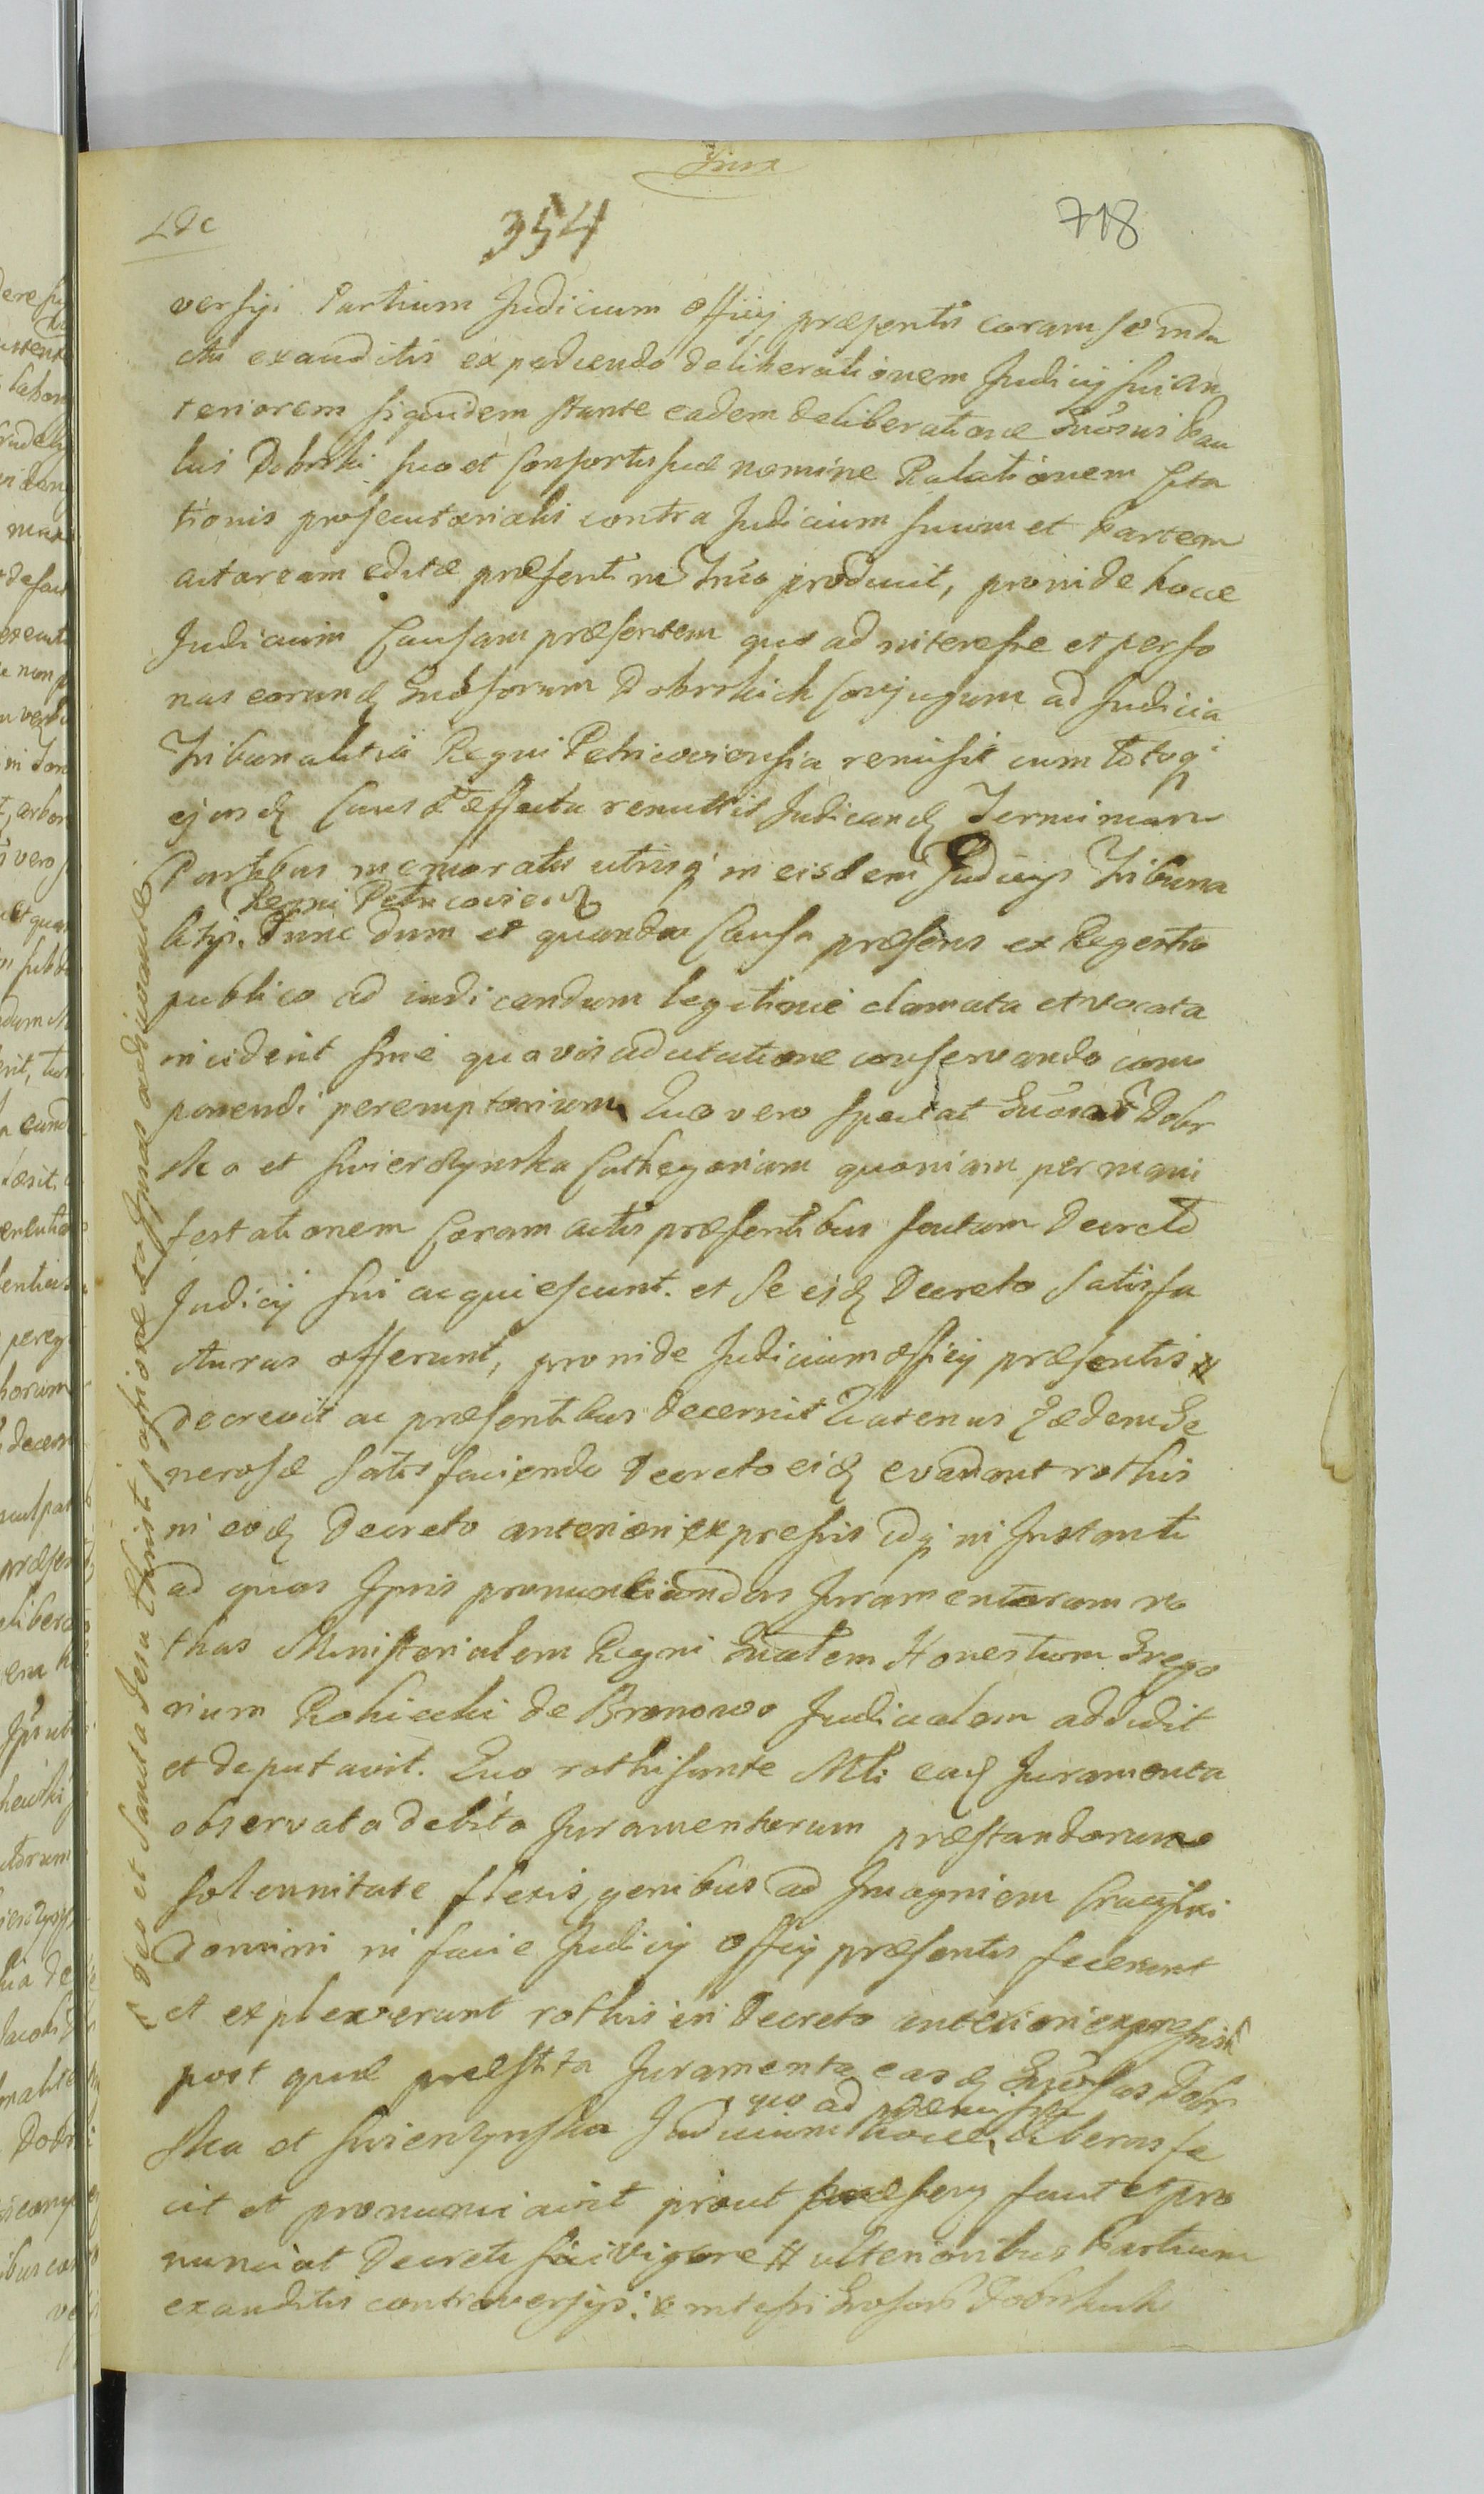 354
718
versiji Partium Judicium Officij præsentis coram se indu
ctis exauditis expediendo deliberationem Judicij sui an
teriorem siquidem stante eadem deliberatione Gnosus Pau
lus Dobrski suo et Consortis suæ nomine Relationem Cita
tionis prosecutorialis contra Judicium suum et Partem
actoream editæ præsenti in Trno produxit, proinde hocce
Judicium Causam præsentem quo ad interesse et perso
nas eorund Gnosorum Dobrskich Conjugum ad Judicia
Tribunalitia Regni Petricoviensia remisit cum totoq
ejusd Causæ effectu remittit Judicand Terminum
Partibus memoratis utrisq in eisdem Judicijs Tribuna
Regni Petricovien
litijs. Tunc dum et quando Causa præsens ex Regestro
publico ad iudicandum legitime clamata et vocata
inciderit sine quavis adcitatione conservando com
parendi peremptorium Quo vero spectat Gnosas Dobr
ska et Swierdzynska Cathegoriam quoniam per mani
festationem Coram actis præsentibus factam Decreto
Judicij sui acquiescunt. et se eid Decreto satisfa
cturas offerunt, proinde Judicium officij præsentis
decrevit ac præsentibus decernit Quatenus Eædem Ge
nerosæ satisfaciendo Decreto eid evadant rothis
in eod Decreto anteriori expressis idq in Instanti
ad quas Ipsis pronuntiandas Juramentorum ro
thas Ministerialem Regni Gnalem Honestum Grego
rium Rokicki de Bronowo Judicialem addidit
et deputavit. Quo rothisante Mli ead Juramenta
observata debita Juramentorum præstandorum
solennitate flexis genibus ad Imaginem Crucifixi
Domini in facie Judicij officij præsentis fecerunt
et expleverunt rothis in Decreto anteriori expressis
post quæ præstita Juramenta easd Gnosas Dobr
quo ad præmissa
ska et Swierdzynska Judicium hocce liberas fe
cit et pronunciavit prout præsens facit et pro
nunciat Decreti sui vigore # ulterioribus Partium
exauditis controversijs:
Deo et Sancta Jesu Christi passione Ipsas adjuvante